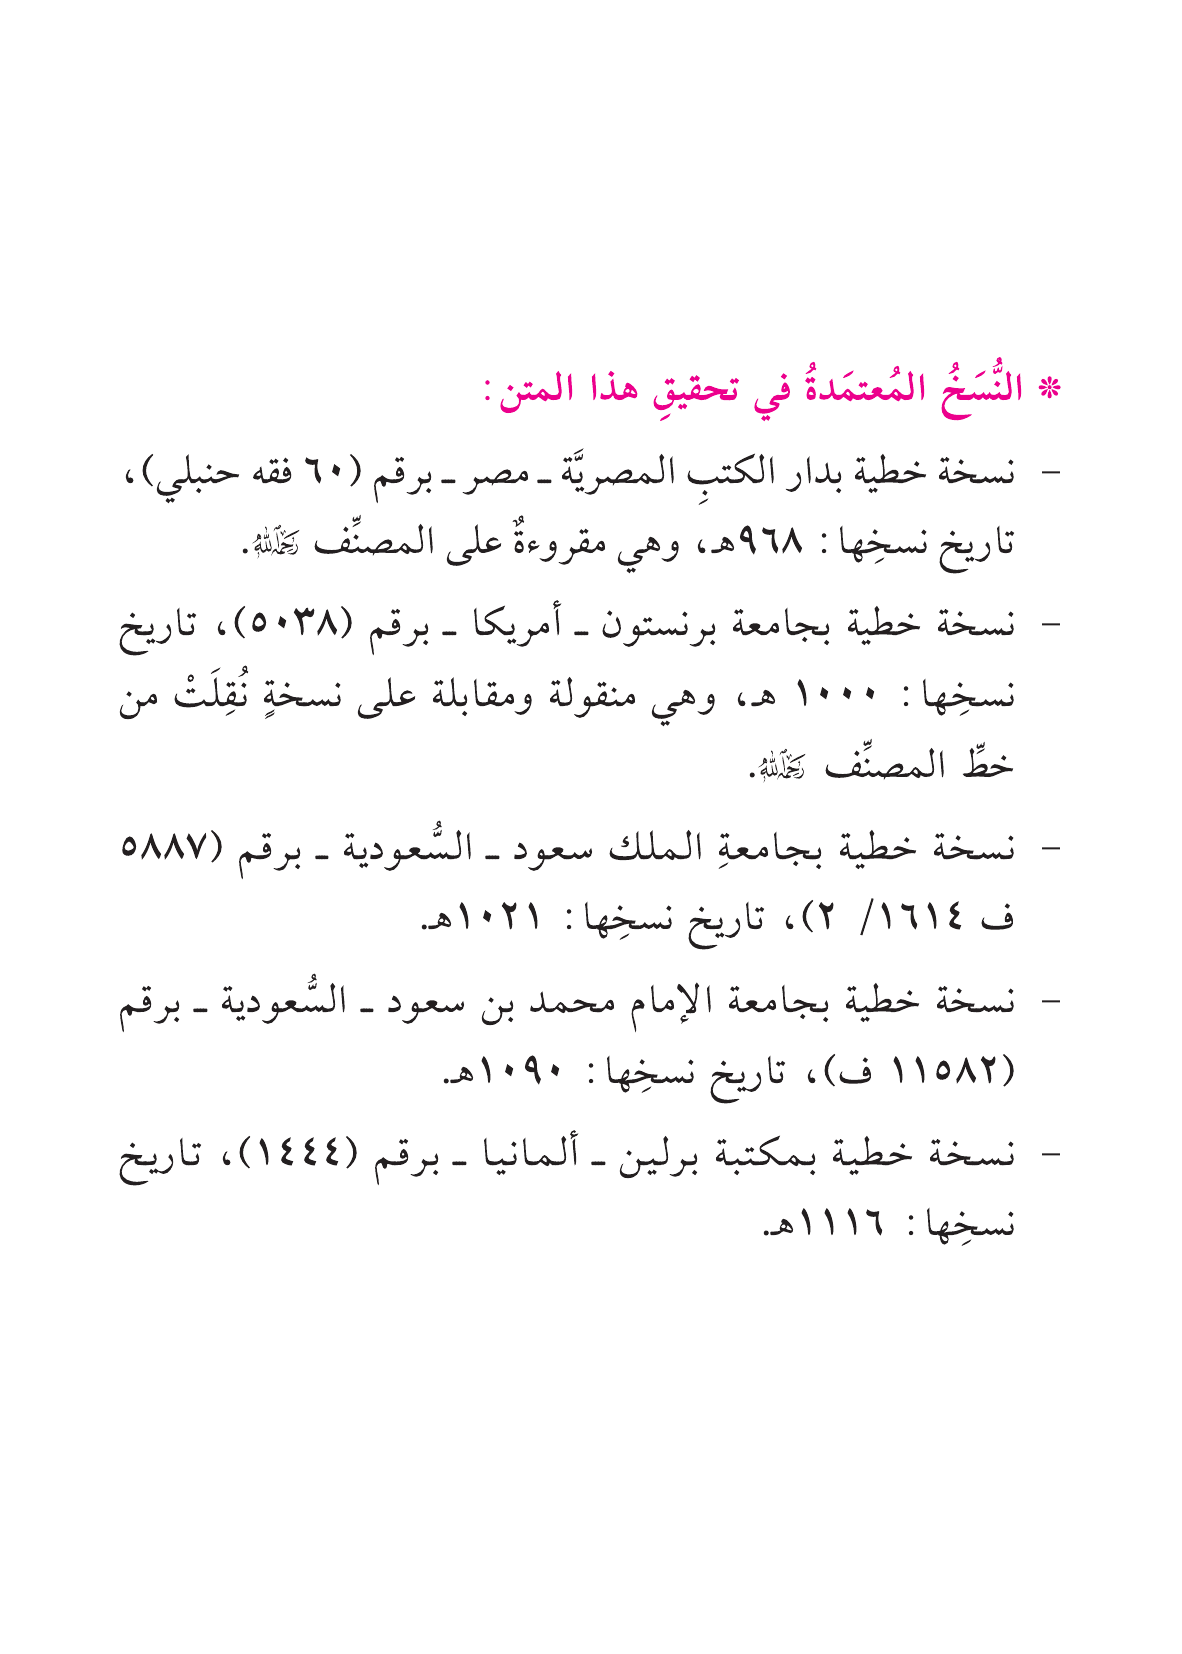 ❊ النُّسَخُ المُعتمَدةُ في تحقيقِ هذا المتن:
– نسخة خطية بدار الكتبِ المصريَّة ـ مصر ـ برقم (٦٠ فقه حنبلي)،
تاريخ نسخِها: ٩٦٨هـ، وهي مقروءةٌ على المصنِّف رحمه الله.
– نسخة خطية بجامعة برنستون ـ أمريكا ـ برقم (٥٠٣٨)، تاريخ
نسخِها: ١٠٠٠ هـ، وهي منقولة ومقابلة على نسخةٍ نُقِلَتْ من
خطِّ المصنِّف رحمه الله.
– نسخة خطية بجامعةِ الملك سعود ـ السُّعودية ـ برقم (٥٨٨٧
ف ١٦١٤/ ٢)، تاريخ نسخِها: ١٠٢١هـ.
– نسخة خطية بجامعة الإمام محمد بن سعود ـ السُّعودية ـ برقم
(١١٥٨٢ ف)، تاريخ نسخِها: ١٠٩٠هـ.
– نسخة خطية بمكتبة برلين ـ ألمانيا ـ برقم (١٤٤٤)، تاريخ
نسخِها: ١١١٦هـ.